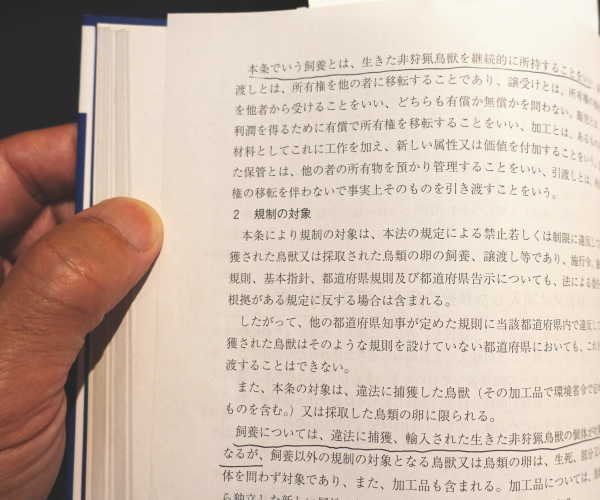 本条でいう飼養とは、生きた非狩猟鳥獣を継続的に所持すること
渡しとは、所有権を他の者に移転することであり、譲受けとは、所有権
を他者から受けることをいい、どちらも有償か無償かを問わない。
利潤を得るために有償で所有権を移転することをいい、加工とは、あるもの
材料としてこれに工作を加え、新しい属性又は価値を付加することをいう。
た保管とは、他の者の所有物を預かり管理することをいい、引渡しとは、
権の移転を伴わないで事実上そのものを引き渡すことをいう。
2 規制の対象
本条により規制の対象は、本法の規定による禁止若しくは制限に違反し
獲された鳥獣又は採取された鳥類の卵の飼養、譲渡し等であり、施行令、
規則、基本指針、都道府県規則及び都道府県告示についても、法による委
根拠がある規定に反する場合は含まれる。
したがって、他の都道府県知事が定めた規則に当該都道府県内で違反し
獲された鳥獣はそのような規則を設けていない都道府県においても、これ
渡することはできない。
また、本条の対象は、違法に捕獲した鳥獣（その加工品で環境省令で
ものを含む。）又は採取した鳥類の卵に限られる。
飼養については、違法に捕獲、輸入された生きた非狩猟鳥獣の個体が
なるが、飼養以外の規制の対象となる鳥獣又は鳥類の卵は、生死、部分
体を問わず対象であり、また、加工品も含まれる。加工品については、